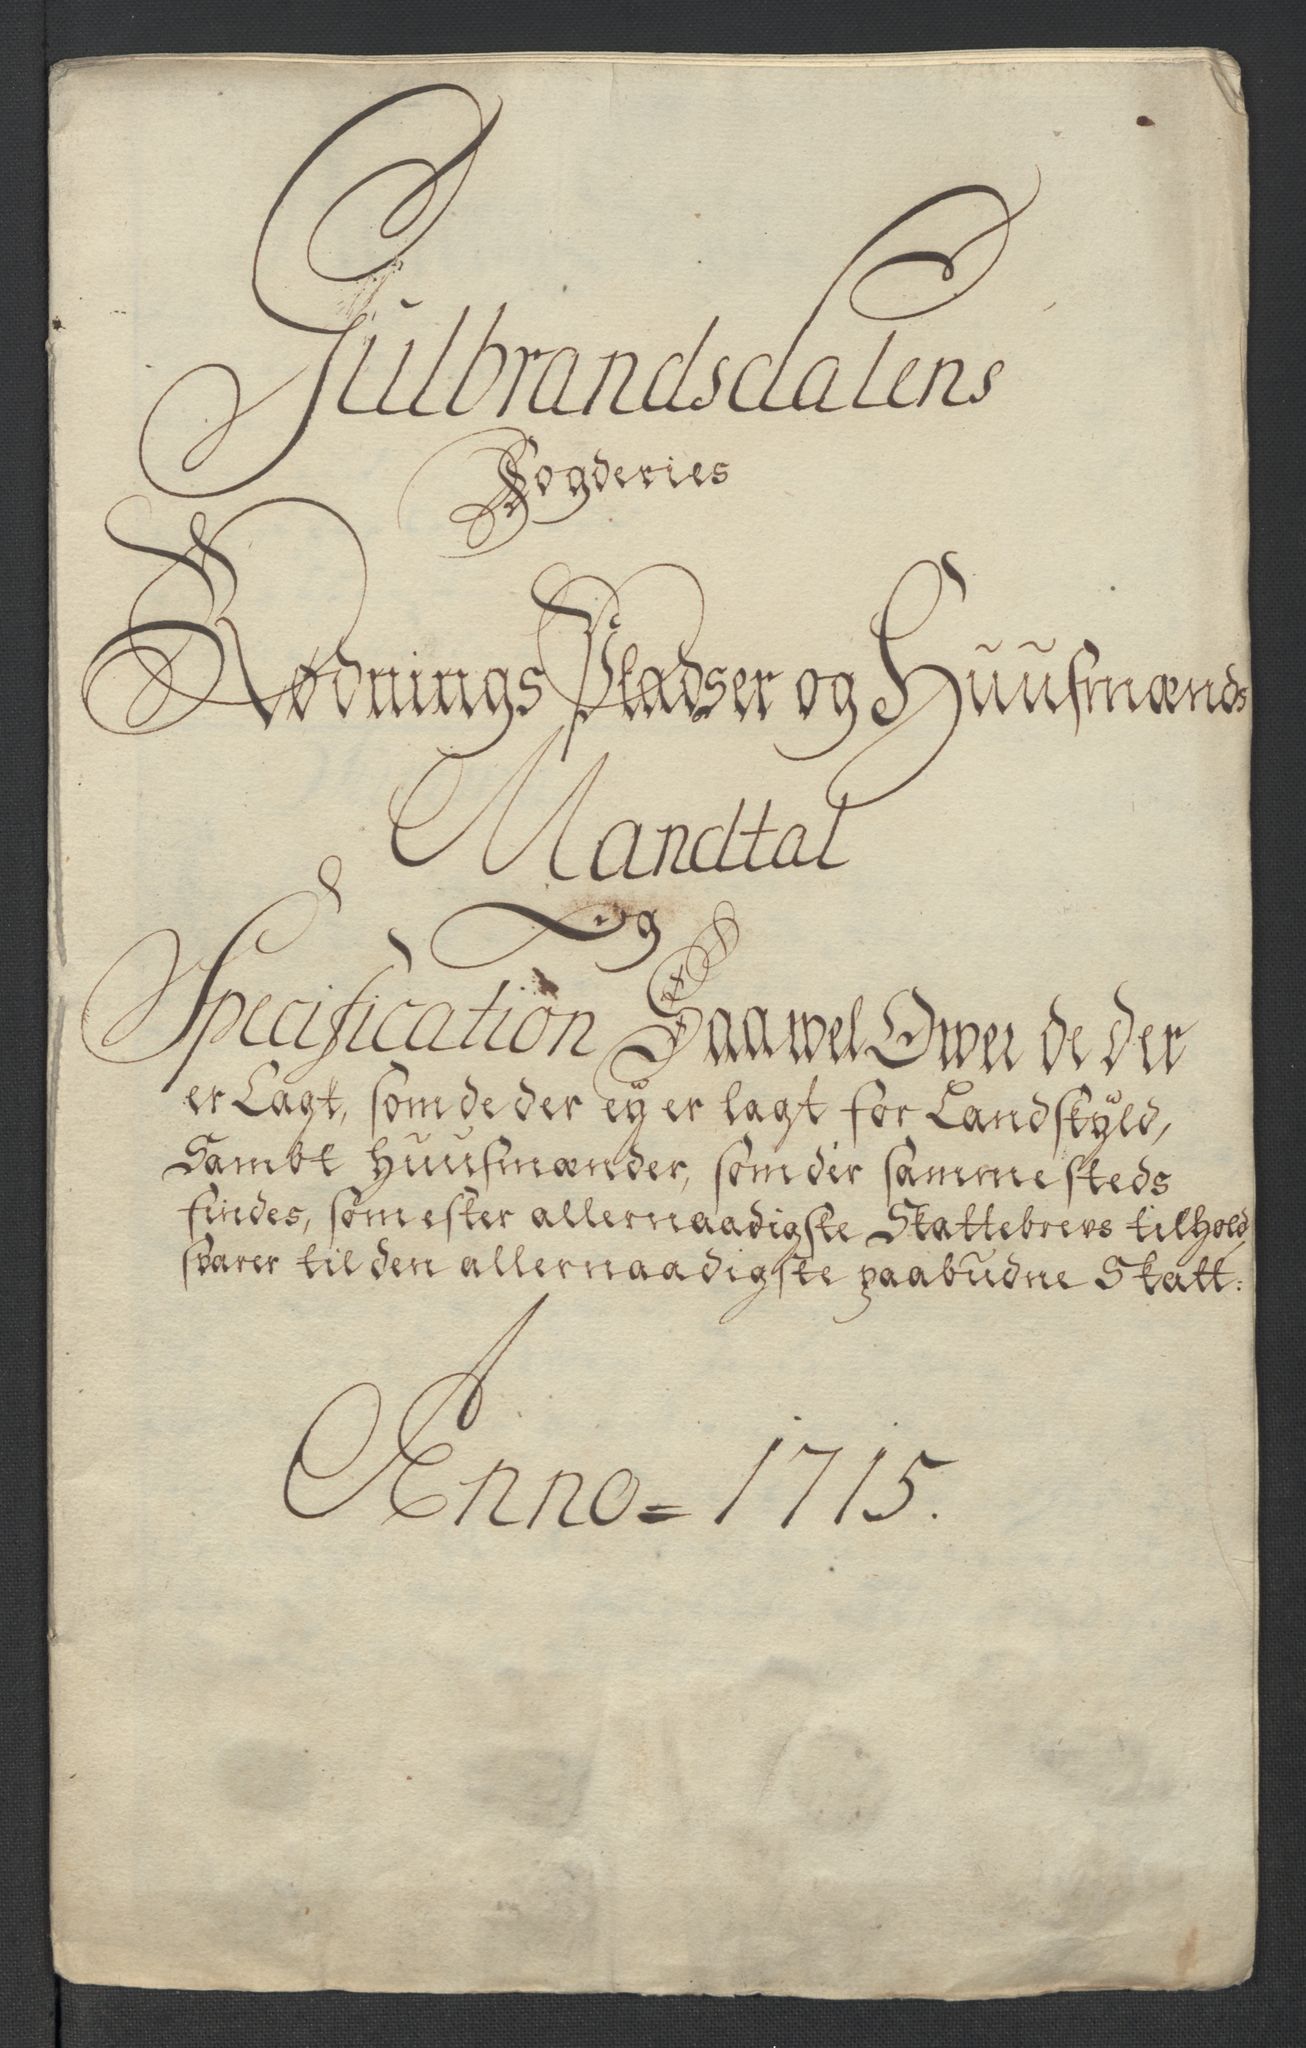 Gulbrandsdalens
Fogderies
Rødnings Pladser og Huusmænds
Mandtal
og
Specification Saawel Ower de der
er Lagt, som de der ey er lagt for Landskÿld,
Sambt Huusmænder, som der samme steds
findes, som efter allernaadigste Skattebrevs tilhold,
svarer til den allernaadigste paabudne Skatt:
Anno = 1715.